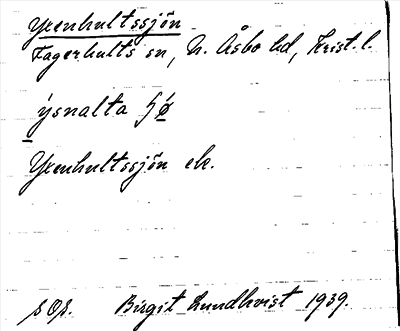 Yxenhultssjön
Fagerhults sn, N. Åsbo hd, Krist. l.
ýsnalta
Yxenhultssjön ek.
SOS. Birgit Lundkvist 1939.